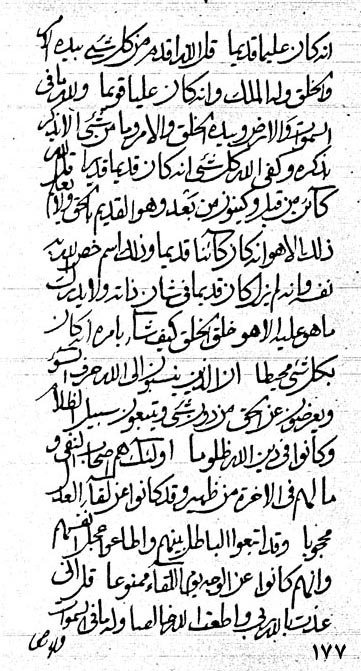 انه كان عليا قديما قل الله اقدم من كل شئ بيده الامر
والخلق وله الملك وانه كان عليا قويما ولله ما في
السموات والارض وبيده الخلق والامر وما من شئ الا يذكر
بذكره وكفى الله كل شئ انه كان قديما قديرا قل الله
كائن من قبل وكينون من بعد وهو القديم بالحق ولا
ذلك الا هو انه كان كائنا قديما وذلك اسم خص لله به
نفسه وانه لم يزل كان قديما في شان ذاته ولا يدرك
ما هو عليه الا هو خلق الخلق كيف شاء بامره انه كان
بكل شئ محيطا ان الذين ينسبون الى الله حرف السوء
ويعرضون عن الحق من دون شئ ويتبعون سبيل الظلم
وكانوا في دين الله ظلوما اولئك هم اصحاب النفي و
ما لهم في الاخرة من ظهير وقد كانوا عن لقاء الله
محجوبا وقد اتبعوا الباطل بينهم واطاعوا عجل انفسهم
وانهم كانوا عن الوجه يوم اللقاء ممنوعا قل اني
عذت بالله ربي له ما في السموات
١٧٧